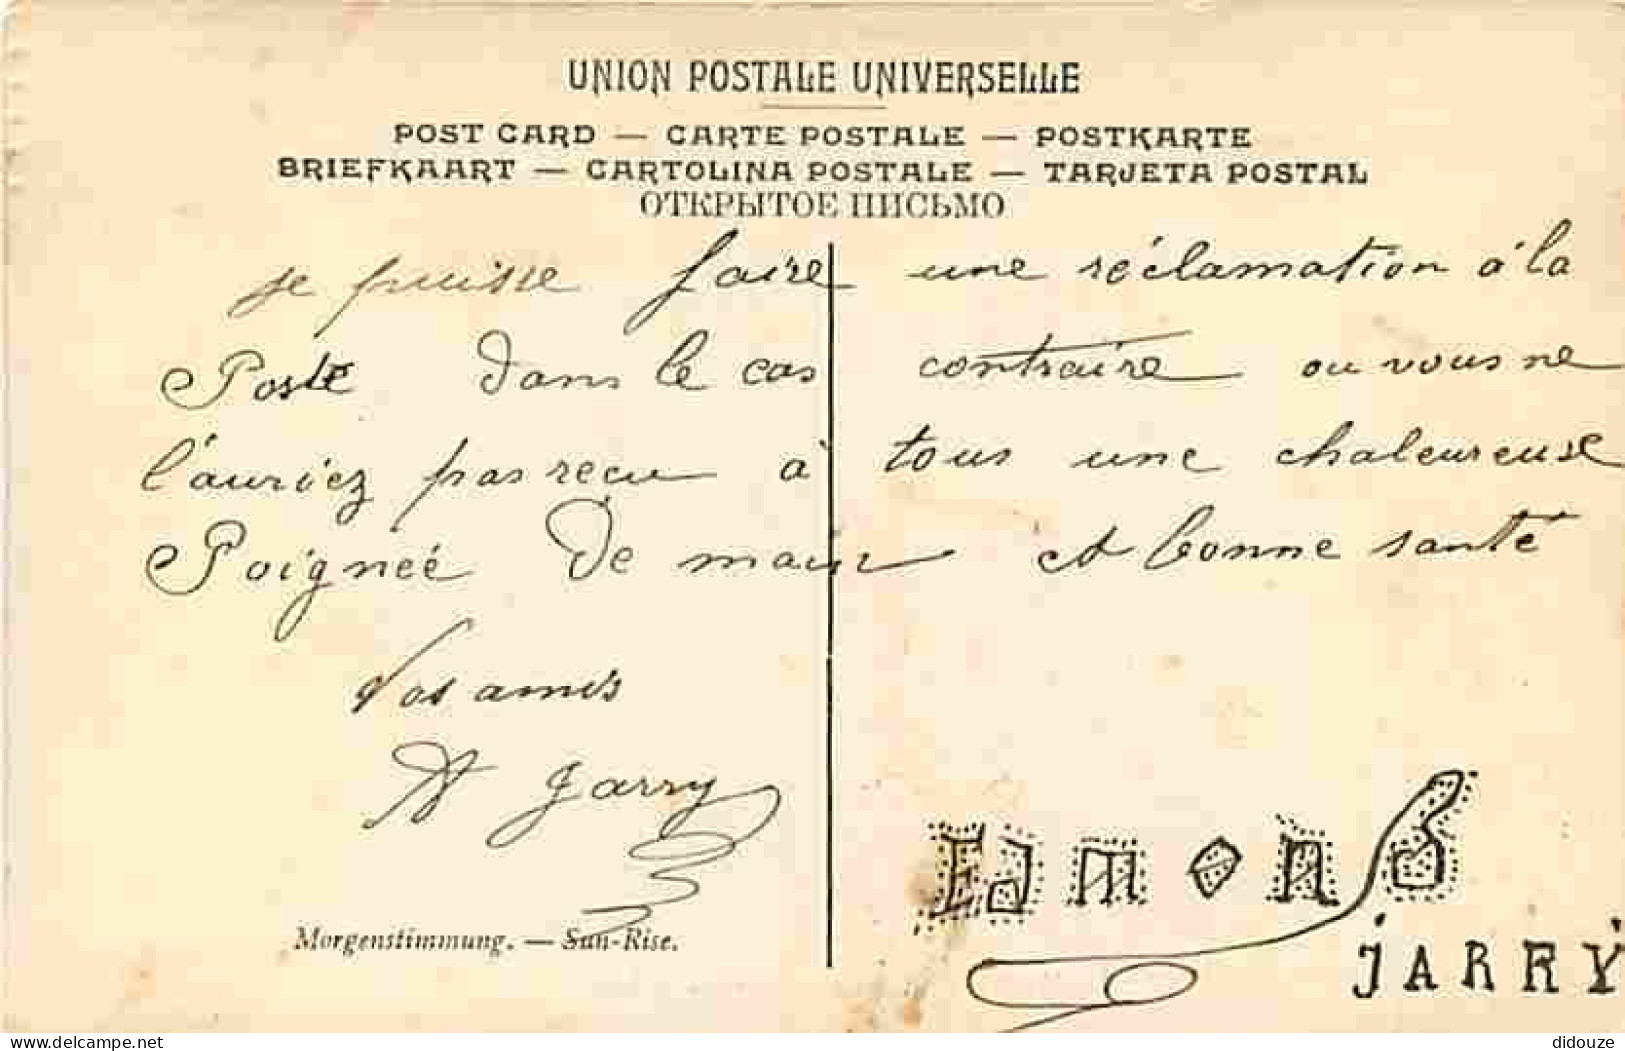 UNION POSTALE UNIVERSELLE
POST CARD — CARTE POSTALE — POSTKARTE
BRIEFKAART — CARTOLINA POSTALE — TARJETA POSTAL
ОТКРЫТОЕ ПИСЬМО
je puisse faire une réclamation à la
Poste dans le cas contraire ou vous ne
l'auriez pas recu à tous une chaleureuse
Poigneé de main et bonne santé
Vos amis
A Jarry
Edmond
JARRY
Morgenstimmung. — Sun-Rise.
delcampe.net
didouze